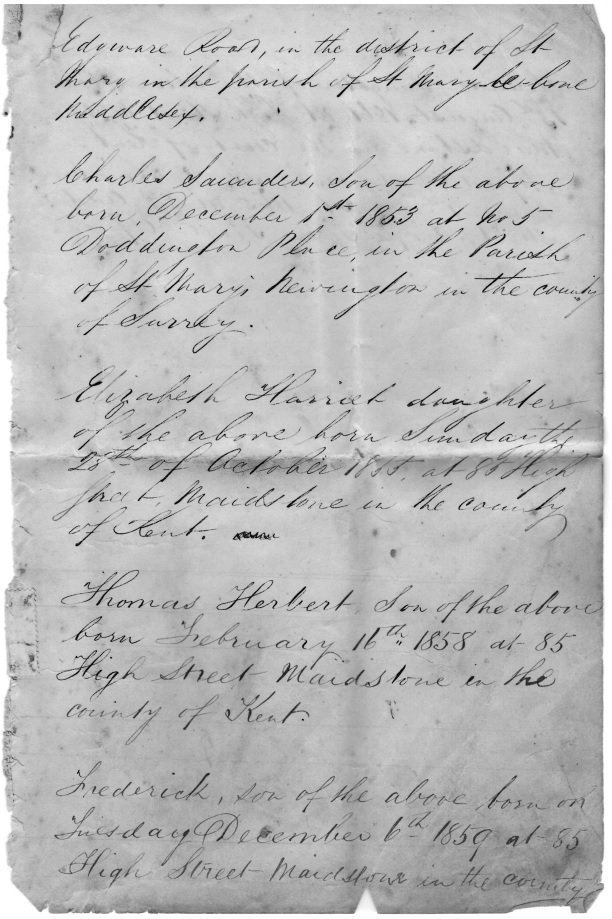 Edgware Road, in the district of St
Mary in the parish of St Mary-le-bone
Middlesex.
Charles Saunders, son of the above
born, December 1st 1853 at No 5
Doddington Place, in the Parish
of St Mary's Newington in the county
of Surrey.
Elizabeth Harriet daughter
of the above born Sunday the
28th of October 1855, at 85 High
Street, Maidstone in the county
of Kent.
Thomas Herbert, Son of the above
born February 16th 1858 at 85
High Street Maidstone in the
county of Kent.
Frederick, son of the above born on
Tuesday December 6th 1859 at 85
High Street Maidstone in the county